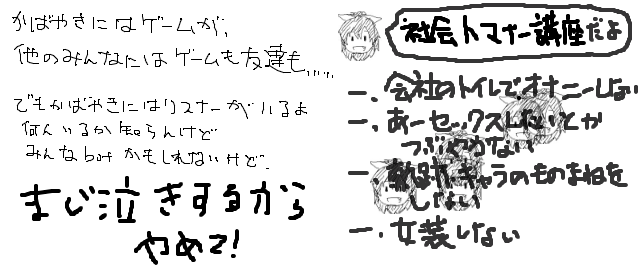 かばやきにはゲームが、
他のみんなにはゲームも友達も......
でもかばやきにはリスナーがいるよ
何人いるか知らんけど
みんなbotかもしれないけど。
まじ泣きするから
やめて!
社会トマナー講座だよ
一、会社のトイレでオナニーしない
一、あーセックスしたいとか
つぶやかない
一、キャラのものまねを
しない
一、女装しない